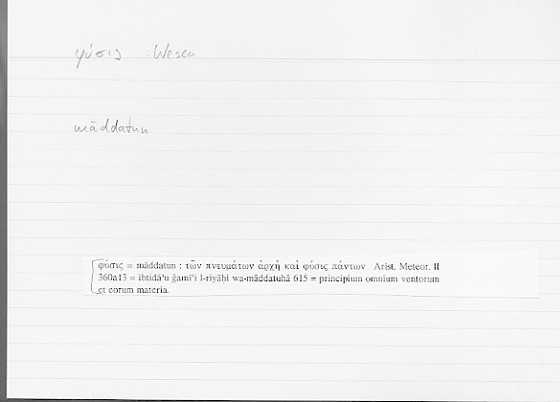 φύσις Wesen
māddatun
φύσις = māddatun : τῶν πνευμάτων ἀρχὴ καὶ φύσις πάντων Arist. Meteor. II
360a13 = ibtidāʾu ǧamīʿi l-riyāḥi wa-māddatuhā 615 = principium omnium ventorum
et eorum materia.